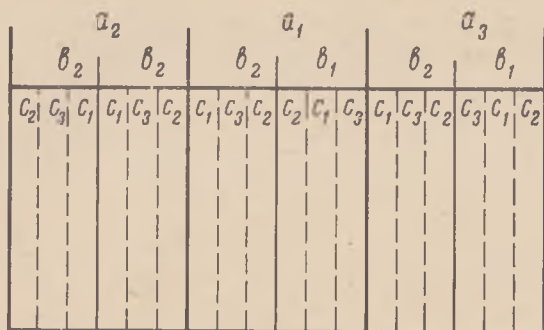 a₂ a₁ a₃
в₂ в₂ в₂ в₁ в₂ в₁
c₂ c₃ c₁ c₁ c₃ c₂ c₁ c₃ c₂ c₂ c₁ c₃ c₁ c₃ c₂ c₃ c₁ c₂